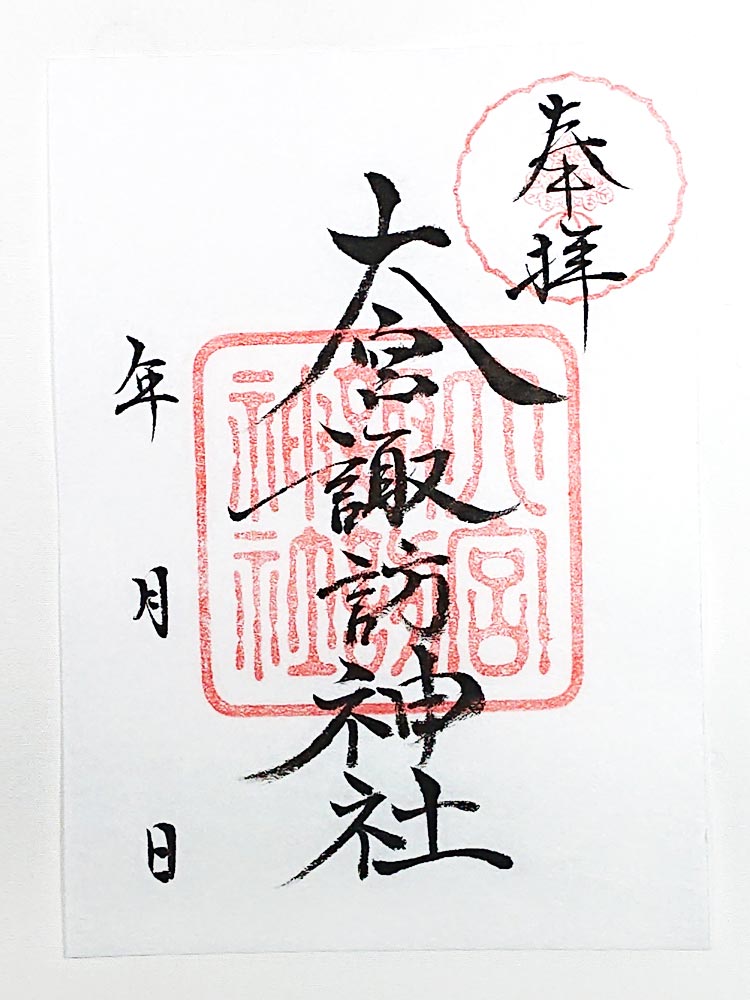 奉拝
大宮諏訪神社
年 月 日
大宮
諏訪
神社